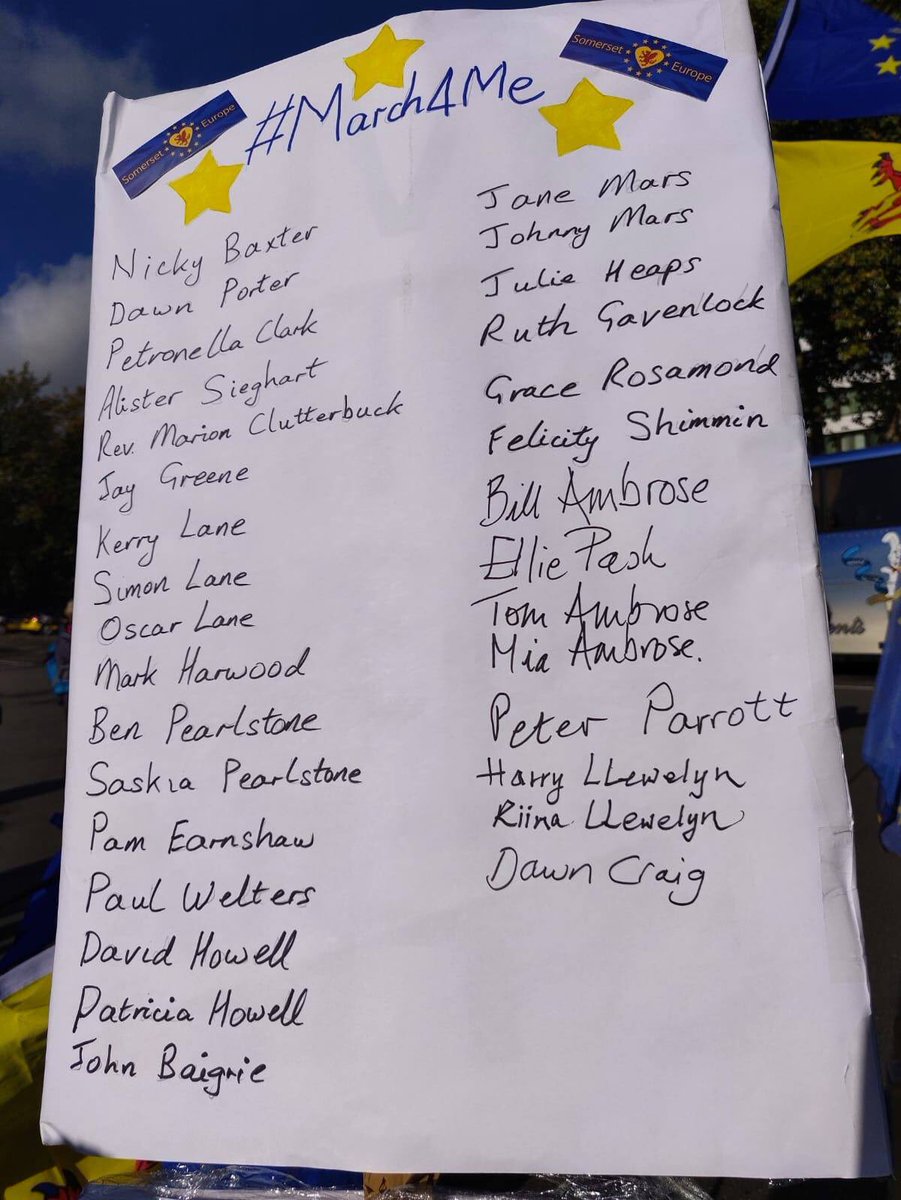 Somerset Europe
#March4Me
Somerset Europe
Nicky Baxter
Dawn Porter
Petronella Clark
Alister Sieghart
Rev. Marion Clutterbuck
Jay Greene
Kerry Lane
Simon Lane
Oscar Lane
Mark Harwood
Ben Pearlstone
Saskia Pearlstone
Pam Earnshaw
Paul Welters
David Howell
Patricia Howell
John Baigrie
Jane Mars
Johnny Mars
Julie Heaps
Ruth Gavenlock
Grace Rosamond
Felicity Shimmin
Bill Ambrose
Ellie
Tom Ambrose
Mia Ambrose.
Peter Parrott
Harry LLewelyn
Riina LLewelyn
Dawn Craig